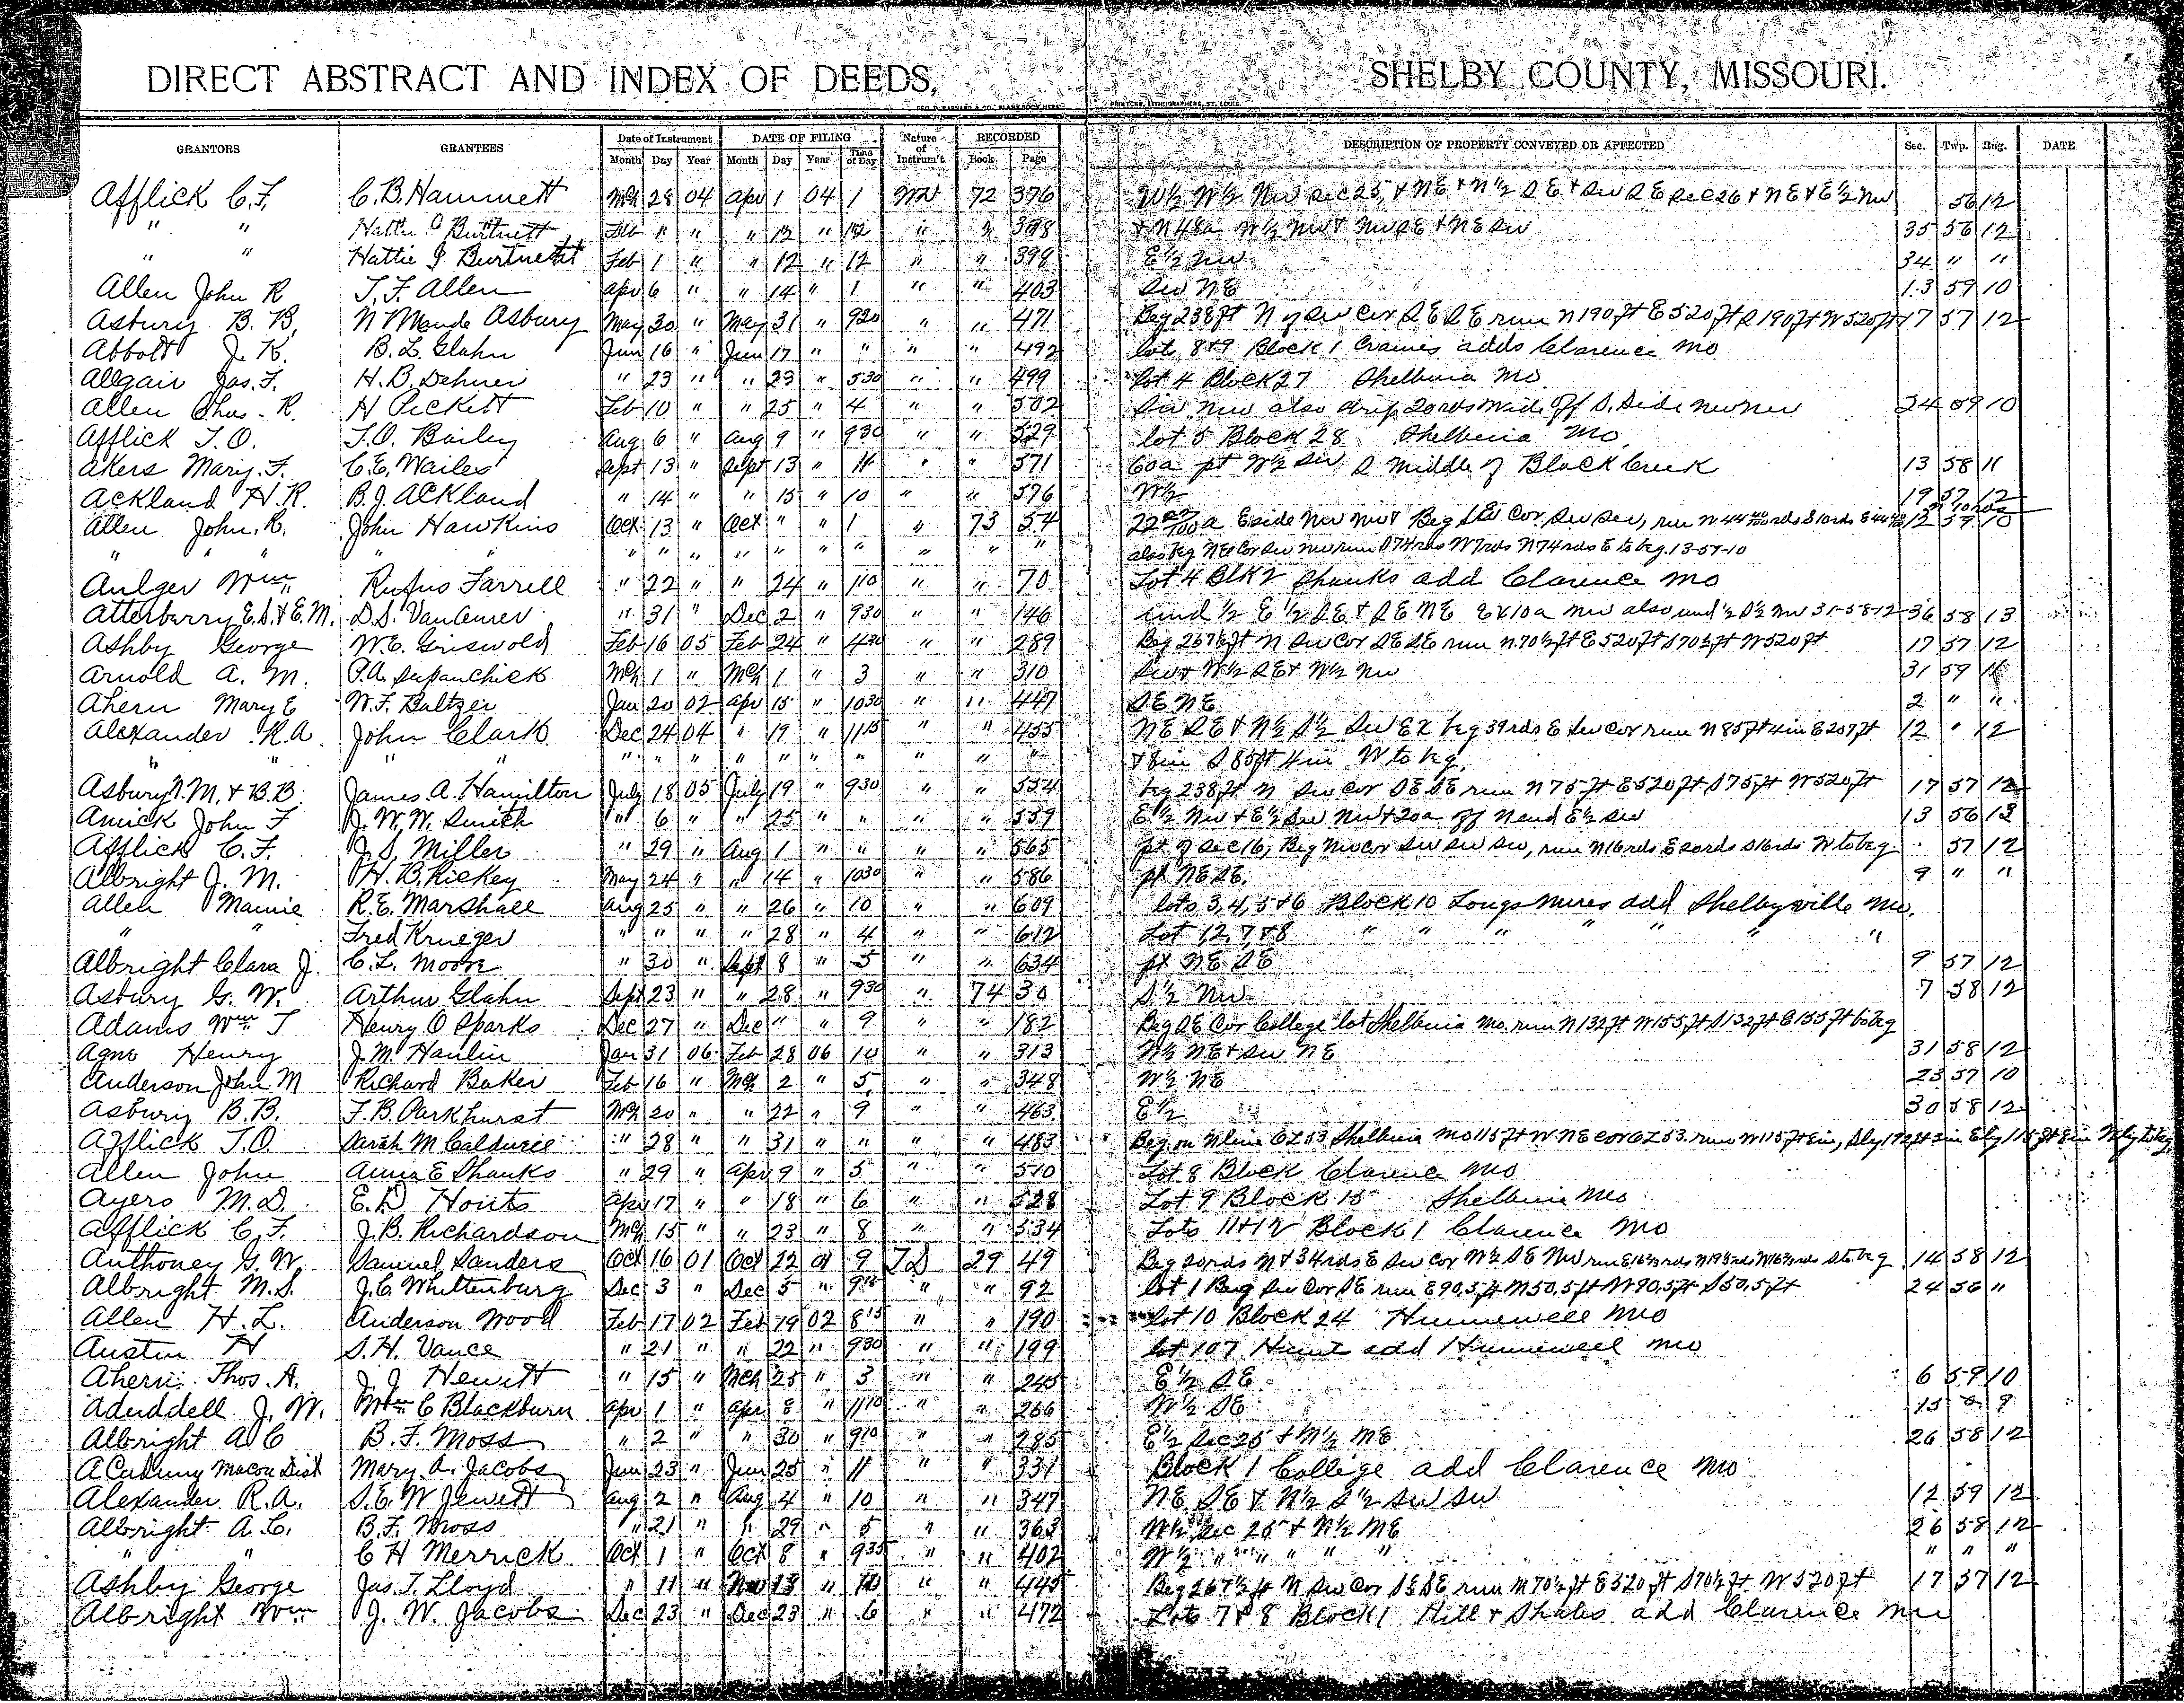 DIRECT ABSTRACT AND INDEX OF DEEDS, SHELBY COUNTY, MISSOURI.
GRANTORS GRANTEES Date of Instrument DATE OF FILING Nature of Instrum't RECORDED DESCRIPTION OF PROPERTY CONVEYED OR AFFECTED Sec. Twp. Rng. DATE
Month Day Year Month Day Year Time of Day Book Page
Afflick C.F. C.B. Hammett Mch 28 04 Apr 1 04 1 WD 72 376 W½ W½ NW Sec 25, + NE + N½ SE + SW SE Sec 26 + NE + E½ NW 56 12
" " Hattie Burtnett Feb 1 " " 12 " 12 " " 398 + N 48a W½ NW + NW SE + NE SW 35 56 12
" " Hattie J Burtnett Feb 1 " " 12 " 12 " " 398 E½ NW 34 " "
Allen John R T.F. Allen Apr 6 " " 14 " 1 " " 403 SW NE 13 59 10
Asbury B.B. N Maude Asbury May 30 " May 31 " 9 20 " " 471 Beg 238 ft N of SW Cor SE SE run N 190 ft E 520 ft S 190 ft W 520 ft 17 57 12
Abbott J.K. B.L. Glahn Jun 16 " Jun 17 " " " " 492 lots 8+9 Block 1 adds Clarence Mo
Allgair Jas. F. H.B. Dehner " 23 " " 23 " 5 30 " " 499 lot 4 Block 27 Shelbina Mo.
Allen Chas. R. H Pickett Feb 10 " " 25 " 4 " " 502 SW NW also strip 20 rds wide off S. Side NW NW 24 59 10
Afflick T.O. T.O. Bailey Aug 6 " Aug 9 " 9 30 " " 529 lot 5 Block 28 Shelbina Mo.
Akers Mary F. C.E. Wailes Sept 13 " Sept 13 " 11 " " 571 60a pt W½ SW S Middle of Black Creek 13 58 11
Ackland H.R. B.J. Ackland " 14 " " 15 " 10 " " 576 W½ 19 57 12
Allen John R. John Hawkins Oct 13 " Oct " " 1 " 73 54 22 a E side NW NW + Beg Cor SW SW, run N 44 rds S 10 rds E 44 12 59 10
" " " " " " " " " " " " " " " also beg NE Cor SW NW run S 74 rds W 7 rds N 74 rds E to beg. 13-59-10
Aulger Wm Rufus Farrell " 22 " " 24 " 1 10 " " 70 Lot 4 Blk 2 Shanks add Clarence Mo
Atterburry E.S. & E.M. D.S. Van " 31 " Dec 2 " 9 30 " " 146 und ½ E ½ SE + SE NE Ex 10a NW also und ½ S½ NW 31-58-12 36 58 13
Ashby George W.C. Griswold Feb 16 05 Feb 24 " 4 30 " " 289 Beg 267½ ft N SW Cor SE SE run N 70½ ft E 520 ft S 70½ ft W 520 ft 17 57 12
Arnold A. M. P.A. Supanchick Mch 1 " Mch 1 " 3 " " 310 SW + W½ SE + W½ NW 31 59 11
Ahern Mary E W.F. Baltzer Jan 20 02 Apr 15 " 10 30 " " 447 SE NE 2 " "
Alexander R.A. John Clark Dec 24 04 " 19 " 11 15 " " 455 NE SE + N½ S½ SW Ex beg 39 rds E SW Cor run N 85 ft 4 in E 209 ft 12 " 12
" " " " " " " " " " " " " " + 8 in S 85 ft 4 in W to beg.
Asbury N.M. & B.B. James A. Hamilton July 18 05 July 19 " 9 30 " " 554 beg 238 ft N SW Cor SE SE run N 75 ft E 520 ft S 75 ft W 520 ft 17 57 12
Amick John F J.W.W. Smith " 6 " " 25 " " " " 559 E½ NW + E½ SW NW + 20a off N end E½ SW 13 56 13
Afflick C.F. J.S. Miller " 29 " Aug 1 " " " " 565 pt of Sec 16, Beg NW Cor SW SW SW, run N 16 rds E 20 rds S 16 rds W to beg 57 12
Albright J.M. H.B. Rickey May 24 " " 14 " 10 30 " " 586 pt NE SE. 9 " "
Allen Mamie R.E. Marshall Aug 25 " " 26 " 10 " " 609 lots 3, 4, 5 & 6 Block 10 Longs add Shelbyville Mo.
" " Fred Krueger " " " " 28 " 4 " " 612 Lot 1,2,7,&8 " " " " " " "
Albright Clara J. C.L. Moore " 30 " Sept 8 " 5 " " 634 pt NE SE 9 57 12
Asbury G.W. Arthur Glahn Sept 23 " " 28 " 9 30 " 74 30 S½ NW 7 58 12
Adams Wm T Henry O Sparks Dec 27 " Dec " " 9 " " 182 Beg SE Cor College lot Shelbina Mo. run N 132 ft W 155 ft S 132 ft E 155 ft to beg
Agno Henry J.M. Hanlin Jan 31 06 Feb 28 06 10 " " 313 W½ NE + SW NE 31 58 12
Anderson John M Richard Baker Feb 16 " Mch 2 " 5 " " 348 W½ NE 23 57 10
Asbury B.B. F.B. Parkhurst Mch 20 " " 22 " 9 " " 463 E½ 30 58 12
Afflick T.O. Sarah M " 28 " " 31 " " " " 483 Beg. on N line OL 53 Shelbina Mo 115 ft W NE cor OL 53 run W 115 ft
Allen John Anna E Shanks " 29 " Apr 9 " 5 " " 510 Lot 8 Block Clarence Mo
Ayers M.D. E.D Houts Apr 17 " " 18 " 6 " " 528 Lot 9 Block 15 Shelbina Mo
Afflick C.F. J.B. Richardson Mch 15 " " 23 " 8 " " 534 Lots 11+12 Block 1 Clarence Mo
Anthoney G.W. Samuel Sanders Oct 16 01 Oct 22 01 9 TD 29 49 Beg 20 rds N + 34 rds E SW Cor W½ SE NW run E 16⅔ rds W 16⅔ rds S to beg 14 58 12
Albright M.S. J.C. Whittenburg Dec 3 " Dec 5 " " " 92 lot 1 Beg SW Cor SE run E 90.5 ft N 50.5 ft W 90.5 ft S 50.5 ft 24 56 "
Allen H.L. Anderson Wood Feb 17 02 Feb 19 02 8 15 " " 190 Lot 10 Block 24 Hunnewell Mo
Austin H S.H. Vance " 21 " " 22 " 9 30 " " 199 lot 107 Hunt add Hunnewell Mo
Ahern Thos. A. J.J. Hewitt " 15 " Mch 25 " 3 " " 245 E½ SE 6 59 10
Aduddell J.W. C Blackburn Apr 1 " Apr 8 " 11 10 " " 266 W½ SE 15 9
Albright A C B.F. Moss " 2 " " 30 " 9 10 " " 285 E½ Sec 25 + N½ NE 26 58 12
Academy Macon Dist Mary A. Jacobs Jun 23 " Jun 25 " 11 " " 331 Block 1 College add Clarence Mo
Alexander R.A. S.E.W Jewett Aug 2 " Aug 4 " 10 " " 347 NE SE + N½ S½ SW SW 12 59 12
Albright A.C. B.F. Moss " 21 " " 29 " 5 " " 363 W½ Sec 25 + N½ NE 26 58 12
" " C H Merrick Oct 1 " Oct 8 " 9 35 " " 402 W½ " " " " " " " "
Ashby George Jas. T. Lloyd " 11 " Nov 18 " 10 " " 445 Beg 267½ ft N SW Cor SE SE run N 70½ ft E 520 ft S 70½ ft W 520 ft 17 57 12
Albright Wm J. W. Jacobs Dec 23 " Dec 23 " 6 " " 472 Lots 7 & 8 Block 1 Hill + add Clarence Mo